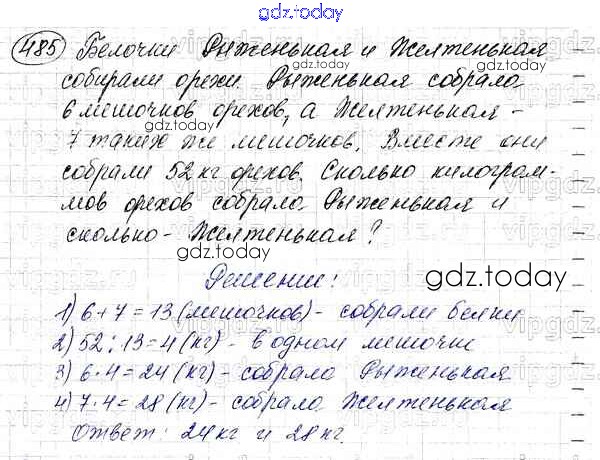 gdz.today
485 Белочки Рыженькая и Желтенькая
собирали орехи. Рыженькая собрала
6 мешочков орехов, а Желтенькая -
7 таких же мешочков. Вместе они
собрали 52 кг орехов. Сколько килограм-
мов орехов собрала Рыженькая и
сколько - Желтенькая?
Решение:
gdz.today
1) 6 + 7 = 13 (мешочков) - собрали белки
2) 52 : 13 = 4 (кг) - в одном мешочке
3) 6 · 4 = 24 (кг) - собрала Рыженькая
4) 7 · 4 = 28 (кг) - собрала Желтенькая
Ответ: 24 кг и 28 кг.